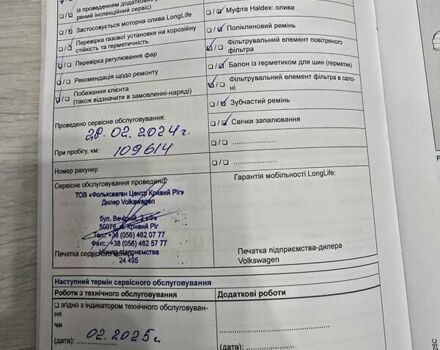 із проведенням додаткових
рений інспекційний сервіс)
Застосовується моторна олива LongLife
Перевірка газової установки на корозійну
стійкість та герметичність.
Перевірка регулювання фар
Рекомендація щодо ремонту
Побажання клієнта
(також відзначити в замовленні-наряді)
Проведено сервісне обслуговування:
28.02.2024г.
При пробігу, км: 109614
Номер рахунку:
Муфта Haldex: олива
Поліклиновий ремінь
Фільтрувальний елемент повітряного
фільтра
Балон із герметиком для шин (гермети)
Фільтрувальний елемент фільтра в сало-
ні
Зубчастий ремінь
Свічки запалювання
Сервісне обслуговування проведено
ТОВ «Фольксваген Центр Кривий Ріг»
Дилер Volkswagen
бул. Вечірній,
50076, м. Кривий Ріг
Тел. +38 (056) 462 07 77
Факс. +38 (056) 462 07 57
Номер підприємства
24 495
Печатка сервісного
Гарантія мобільності LongLife:
Печатка підприємства-дилера
Volkswagen
Наступний термін сервісного обслуговування
Роботи з технічного обслуговування
згідно з індикатором технічного обслуговуван-
ня
чи
(дата): 02.2025г.
Додаткові роботи
(дата):